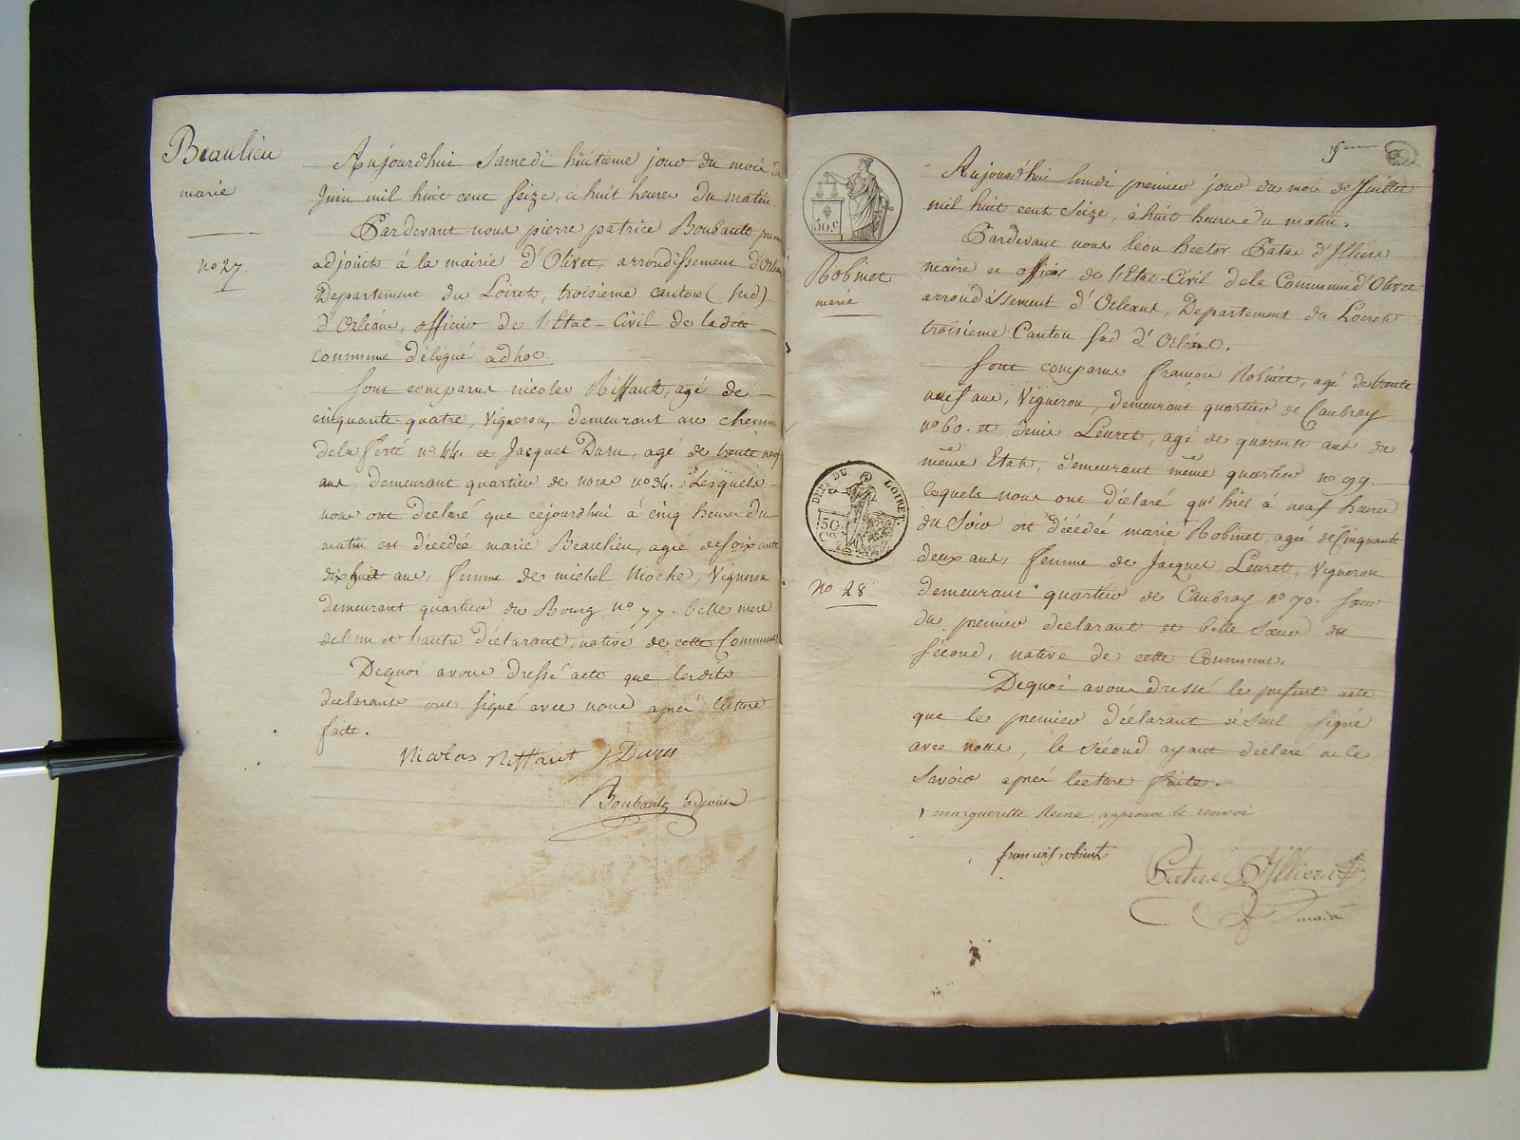 Beaulieu
marie
no 27
Aujourdhui Samedi huitieme jour du mois de
Juin mil huit cent Seize, à huit heures du matin.
Pardevant nous pierre patrice Boubault
adjoint à la mairie d'Olivet, arrondissement d'Orleans
Departement du Loiret, troisieme canton (Sud)
d'Orléans, officier de l'Etat-Civil de ladite
commune délégué adhoc.
Sont comparus nicolas Riffault, agé de
cinquante quatre, Vigneron, demeurant au chemin
dela ferté no 44. et Jacques Daru, agé de trente neuf
ans, demeurant quartier de no 34. Lesquels
nous ont declaré que cejourdhui à cinq heures du
matin est décédée marie Beaulieu, agée de soixante
dix huit ans, femme de michel Moche, Vigneron
demeurant quartier du Bourg no 77. belle mere
del'un et l'autre déclarant, native de cette Commune
Dequoi avons dressé acte que lesdits
declarants ont signé avec nous aprés lecture
faite.
Nicolas Riffaut J Daru
Boubault adjoint
50 c
Robinet
marie
DEPT DU LOIRET.
50
no 28
Aujourd'hui lundi premier jour du mois de Juillet
mil huit cent Seize, à huit heures du matin.
Pardevant nous léon hector Patas d'Illiers
maire et officier de l'Etat-Civil dela Commune d'Olivet
arrondissement d'Orleans, Departement du Loiret
troisieme Canton Sud d'Orléans.
Sont comparus françois Robinet, agé de trente
neuf ans, Vigneron, demeurant quartier de Caubray
no 60. et denis Leuret, agé de quarante ans de
même Etat, demeurant même quartier no 99.
lequels nous ont déclaré qu'hier à neuf heures
du Soir est décédée marie Robinet, agée de Cinquante
deux ans, femme de Jacques Leuret, Vigneron
demeurant quartier de Caubray no 70. Sœur
du premier declarant et belle Sœur du
Sécond, native de cette Commune.
Dequoi avons dressé le présent acte
que le premier déclarant à seul signé
avec nous, le sécond ayant déclaré ne le
Savoir aprés lecture faite.
marguerite Reine approuvé le renvoi
francois robinet
Patas d'Illiers
maire